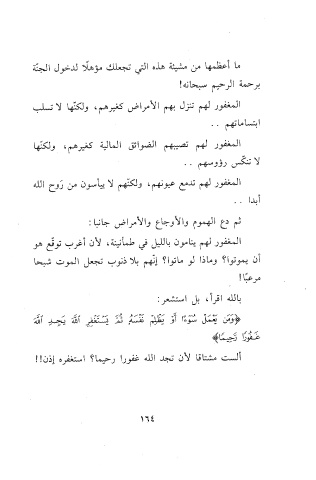 ما أعظمها من مشيئة هذه التي تجعلك مؤهلًا لدخول الجنّة
برحمة الرحيم سبحانه!
المغفور لهم تنزل بهم الأمراض كغيرهم، ولكنّها لا تسلب
ابتساماتهم . .
المغفور لهم تصيبهم الضوائق المالية كغيرهم، ولكنّها
لا تنكّس رؤوسهم . .
المغفور لهم تدمع عيونهم، ولكنّهم لا ييأسون من رَوح الله
أبدا . .
ثم دع الهموم والأوجاع والأمراض جانبا:
المغفور لهم ينامون بالليل في طمأنينة، لأن أغرب توقّع هو
أن يموتوا؟ وماذا لو ماتوا؟ إنّهم بلا ذنوب تجعل الموت شبحا
مرعبًا!
بالله اقرأ، بل استشعر:
﴿وَمَن يَعْمَلْ سُوٓءًا أَوْ يَظْلِمْ نَفْسَهُۥ ثُمَّ يَسْتَغْفِرِ ٱللَّهَ يَجِدِ ٱللَّهَ
غَفُورًا رَّحِيمًا﴾
ألست مشتاقا لأن تجد الله غفورا رحيما؟ استغفره إذن!!
١٦٤